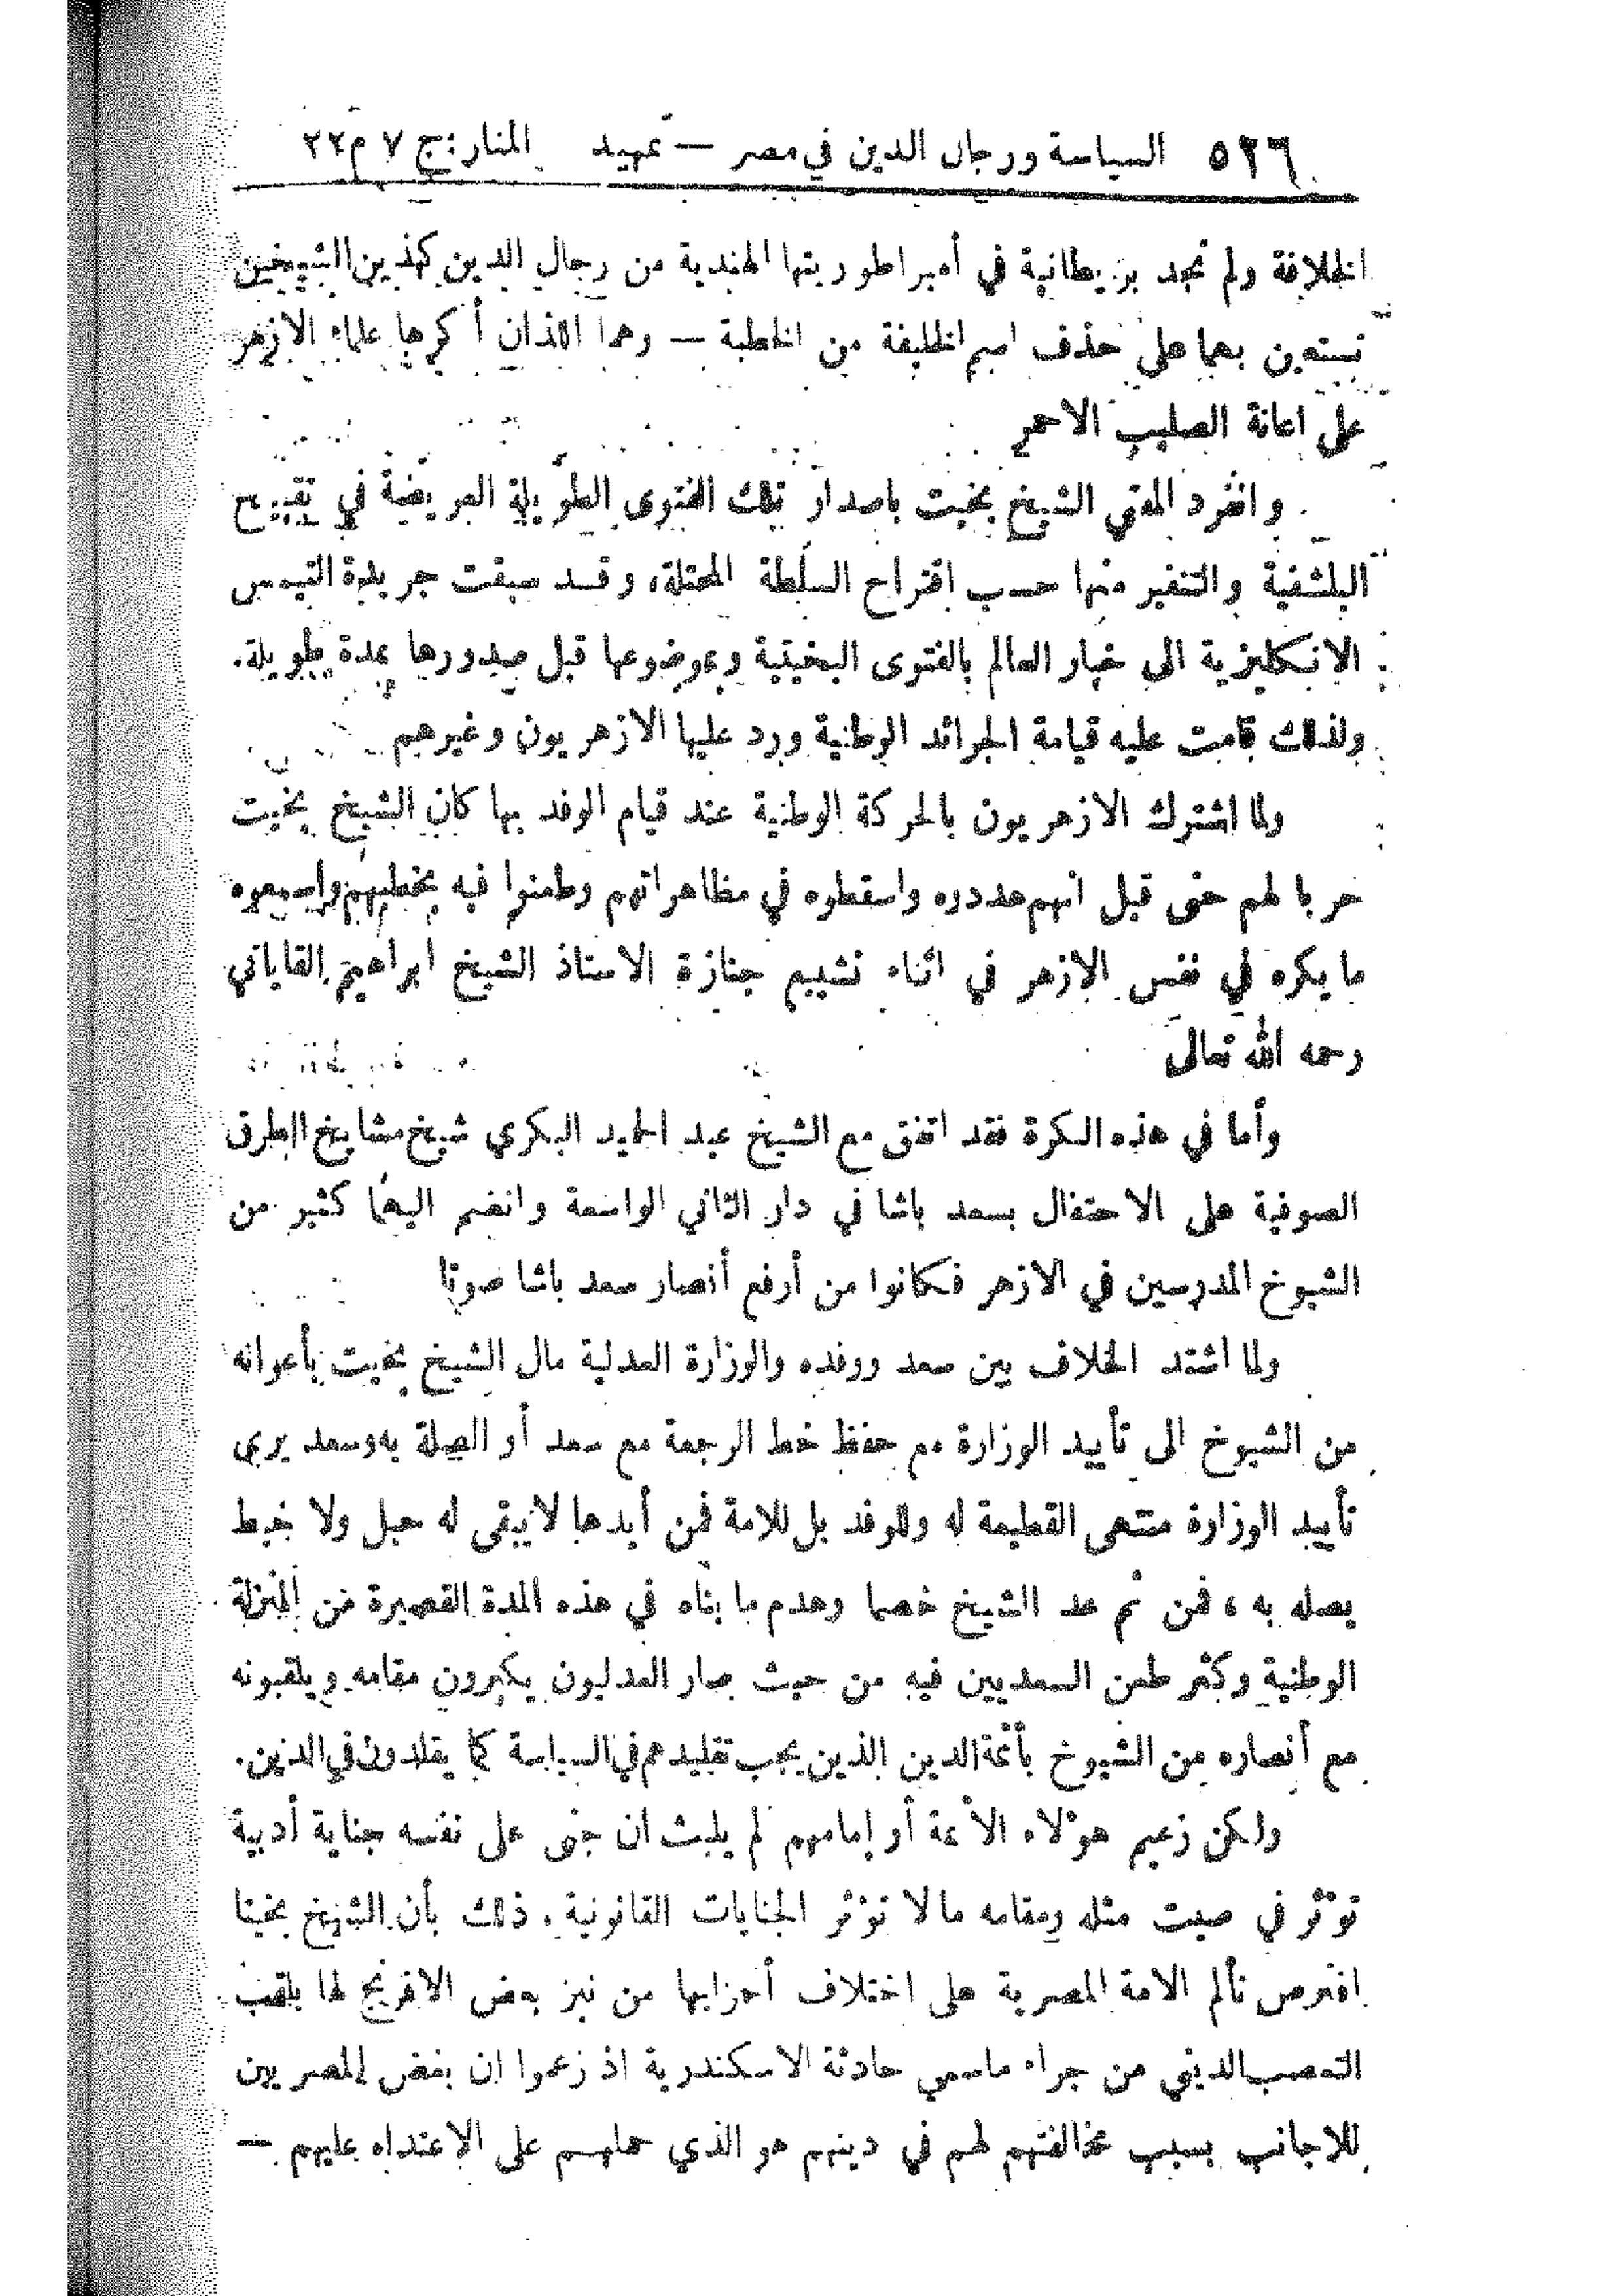 ٥٢٦ السياسة ورجال الدين في مصر — تمهيد المنار: ج ٧ م ٢٢
الخلافة ولم تجد بريطانية في أمبراطوريتها الهندية من رجال الدين كهذين الشيخين
تستعين بهما على حذف اسم الخليفة من الخطبة — وهما اللذان أكرها علماء الازهر
على اعانة الصليب الاحمر
وانفرد المفتي الشيخ بخيت باصدار تلك الفتوى الطويلة العريضة في تقبيح
البلشفية والتنفير منها حسب اقتراح السلطة المحتلة، وقد سبقت جريدة التيمس
الانكليزية الى اخبار العالم بالفتوى البخيتية وبموضوعها قبل صدورها بمدة طويلة.
ولذلك قامت عليه قيامة الجرائد الوطنية ورد عليها الازهريون وغيرهم
ولما اشترك الازهريون بالحركة الوطنية عند قيام الوفد بها كان الشيخ بخيت
حربا لهم حتى قيل انهم هددوه واسقطوه في مظاهراتهم وطعنوا فيه بخطبهم واسمعوه
ما يكره في نفس الازهر في اثناء تشييع جنازة الاستاذ الشيخ ابراهيم القاياتي
رحمه الله تعالى
وأما في هذه الكرة فقد اتفق مع الشيخ عبد الحميد البكري شيخ مشايخ الطرق
الصوفية على الاحتفال بسعد باشا في دار الثاني الواسعة وانضم اليهما كثير من
الشيوخ المدرسين في الازهر فكانوا من أرفع أنصار سعد باشا صوتا
ولما اشتد الخلاف بين سعد ووفده والوزارة العدلية مال الشيخ بخيت بأعوانه
من الشيوخ الى تأييد الوزارة مع حفظ خط الرجعة مع سعد أو الصلة به وسعد يرى
تأييد الوزارة منتهى القطيعة له وللوفد بل للامة فمن أيدها لا يبقى له حبل ولا خيط
يصله به ، فمن ثم عد الشيخ خصما وهدم ما بناه في هذه المدة القصيرة من المنزلة
الوطنية وكثر طعن السعديين فيه من حيث صار العدليون يكبرون مقامه ويلقبونه
مع أنصاره من الشيوخ بأئمة الدين الذين يجب تقليدهم في السياسة كما يقلدون في الدين.
ولكن زعيم هؤلاء الأئمة أو إمامهم لم يلبث ان جنى على نفسه جناية أدبية
تؤثر في صيت مثله ومقامه ما لا تؤثر الجنايات القانونية . ذلك بأن الشيخ بخيتا
افترص تألم الامة المصرية على اختلاف أحزابها من نبز بعض الافرنج لها بلقب
التعصب الديني من جراء ما سمي حادثة الاسكندرية اذ زعموا ان بغض المصريين
للاجانب بسبب مخالفتهم لهم في دينهم هو الذي حملهم على الاعتداء عليهم —